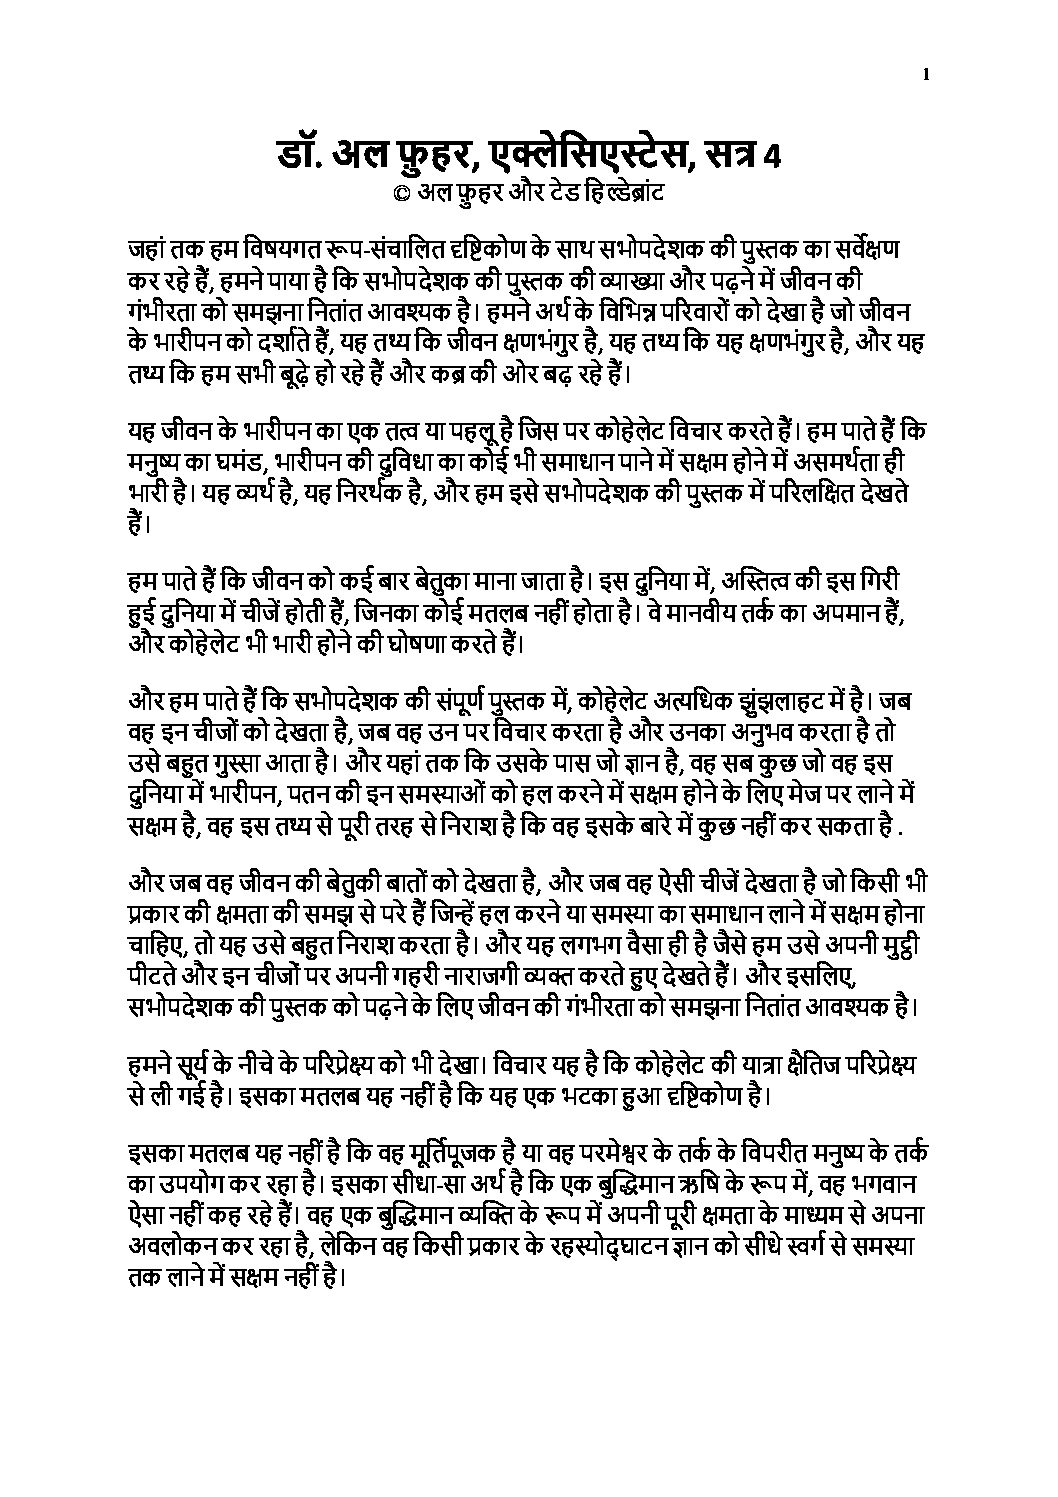 1
डॉ. अल फ़ुहर, एक्लेसिएस्टेस, सत्र 4
© अल फ़ुहर और टेड हिल्डेब्रांट
जहां तक हम विषयगत रूप-संचालित दृष्टिकोण के साथ सभोपदेशक की पुस्तक का सर्वेक्षण
कर रहे हैं, हमने पाया है कि सभोपदेशक की पुस्तक की व्याख्या और पढ़ने में जीवन की
गंभीरता को समझना नितांत आवश्यक है। हमने अर्थ के विभिन्न परिवारों को देखा है जो जीवन
के भारीपन को दर्शाते हैं, यह तथ्य कि जीवन क्षणभंगुर है, यह तथ्य कि यह क्षणभंगुर है, और यह
तथ्य कि हम सभी बूढ़े हो रहे हैं और कब्र की ओर बढ़ रहे हैं।
यह जीवन के भारीपन का एक तत्व या पहलू है जिस पर कोहेलेट विचार करते हैं। हम पाते हैं कि
मनुष्य का घमंड, भारीपन की दुविधा का कोई भी समाधान पाने में सक्षम होने में असमर्थता ही
भारी है। यह व्यर्थ है, यह निरर्थक है, और हम इसे सभोपदेशक की पुस्तक में परिलक्षित देखते
हैं।
हम पाते हैं कि जीवन को कई बार बेतुका माना जाता है। इस दुनिया में, अस्तित्व की इस गिरी
हुई दुनिया में चीजें होती हैं, जिनका कोई मतलब नहीं होता है। वे मानवीय तर्क का अपमान हैं,
और कोहेलेट भी भारी होने की घोषणा करते हैं।
और हम पाते हैं कि सभोपदेशक की संपूर्ण पुस्तक में, कोहेलेट अत्यधिक झुंझलाहट में है। जब
वह इन चीजों को देखता है, जब वह उन पर विचार करता है और उनका अनुभव करता है तो
उसे बहुत गुस्सा आता है। और यहां तक कि उसके पास जो ज्ञान है, वह सब कुछ जो वह इस
दुनिया में भारीपन, पतन की इन समस्याओं को हल करने में सक्षम होने के लिए मेज पर लाने में
सक्षम है, वह इस तथ्य से पूरी तरह से निराश है कि वह इसके बारे में कुछ नहीं कर सकता है .
और जब वह जीवन की बेतुकी बातों को देखता है, और जब वह ऐसी चीजें देखता है जो किसी भी
प्रकार की क्षमता की समझ से परे हैं जिन्हें हल करने या समस्या का समाधान लाने में सक्षम होना
चाहिए, तो यह उसे बहुत निराश करता है। और यह लगभग वैसा ही है जैसे हम उसे अपनी मुट्ठी
पीटते और इन चीजों पर अपनी गहरी नाराजगी व्यक्त करते हुए देखते हैं। और इसलिए,
सभोपदेशक की पुस्तक को पढ़ने के लिए जीवन की गंभीरता को समझना नितांत आवश्यक है।
हमने सूर्य के नीचे के परिप्रेक्ष्य को भी देखा। विचार यह है कि कोहेलेट की यात्रा क्षैतिज परिप्रेक्ष्य
से ली गई है। इसका मतलब यह नहीं है कि यह एक भटका हुआ दृष्टिकोण है।
इसका मतलब यह नहीं है कि वह मूर्तिपूजक है या वह परमेश्वर के तर्क के विपरीत मनुष्य के तर्क
का उपयोग कर रहा है। इसका सीधा-सा अर्थ है कि एक बुद्धिमान ऋषि के रूप में, वह भगवान
ऐसा नहीं कह रहे हैं। वह एक बुद्धिमान व्यक्ति के रूप में अपनी पूरी क्षमता के माध्यम से अपना
अवलोकन कर रहा है, लेकिन वह किसी प्रकार के रहस्योद्घाटन ज्ञान को सीधे स्वर्ग से समस्या
तक लाने में सक्षम नहीं है।